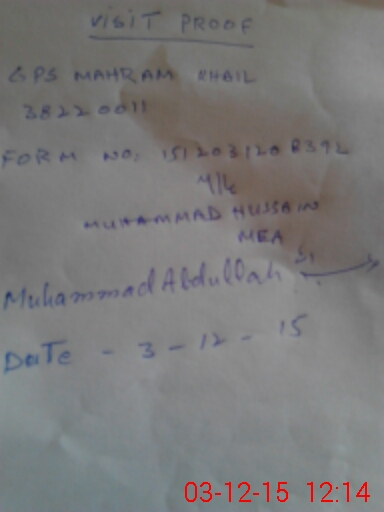 VISIT PROOF
GPS MAHRAM KHAIL
38220011
FORM NO: 151203120R392
MUHAMMAD HUSSAIN
MEA
Muhammad Abdullah
Date - 3 - 12 - 15
03-12-15 12:14